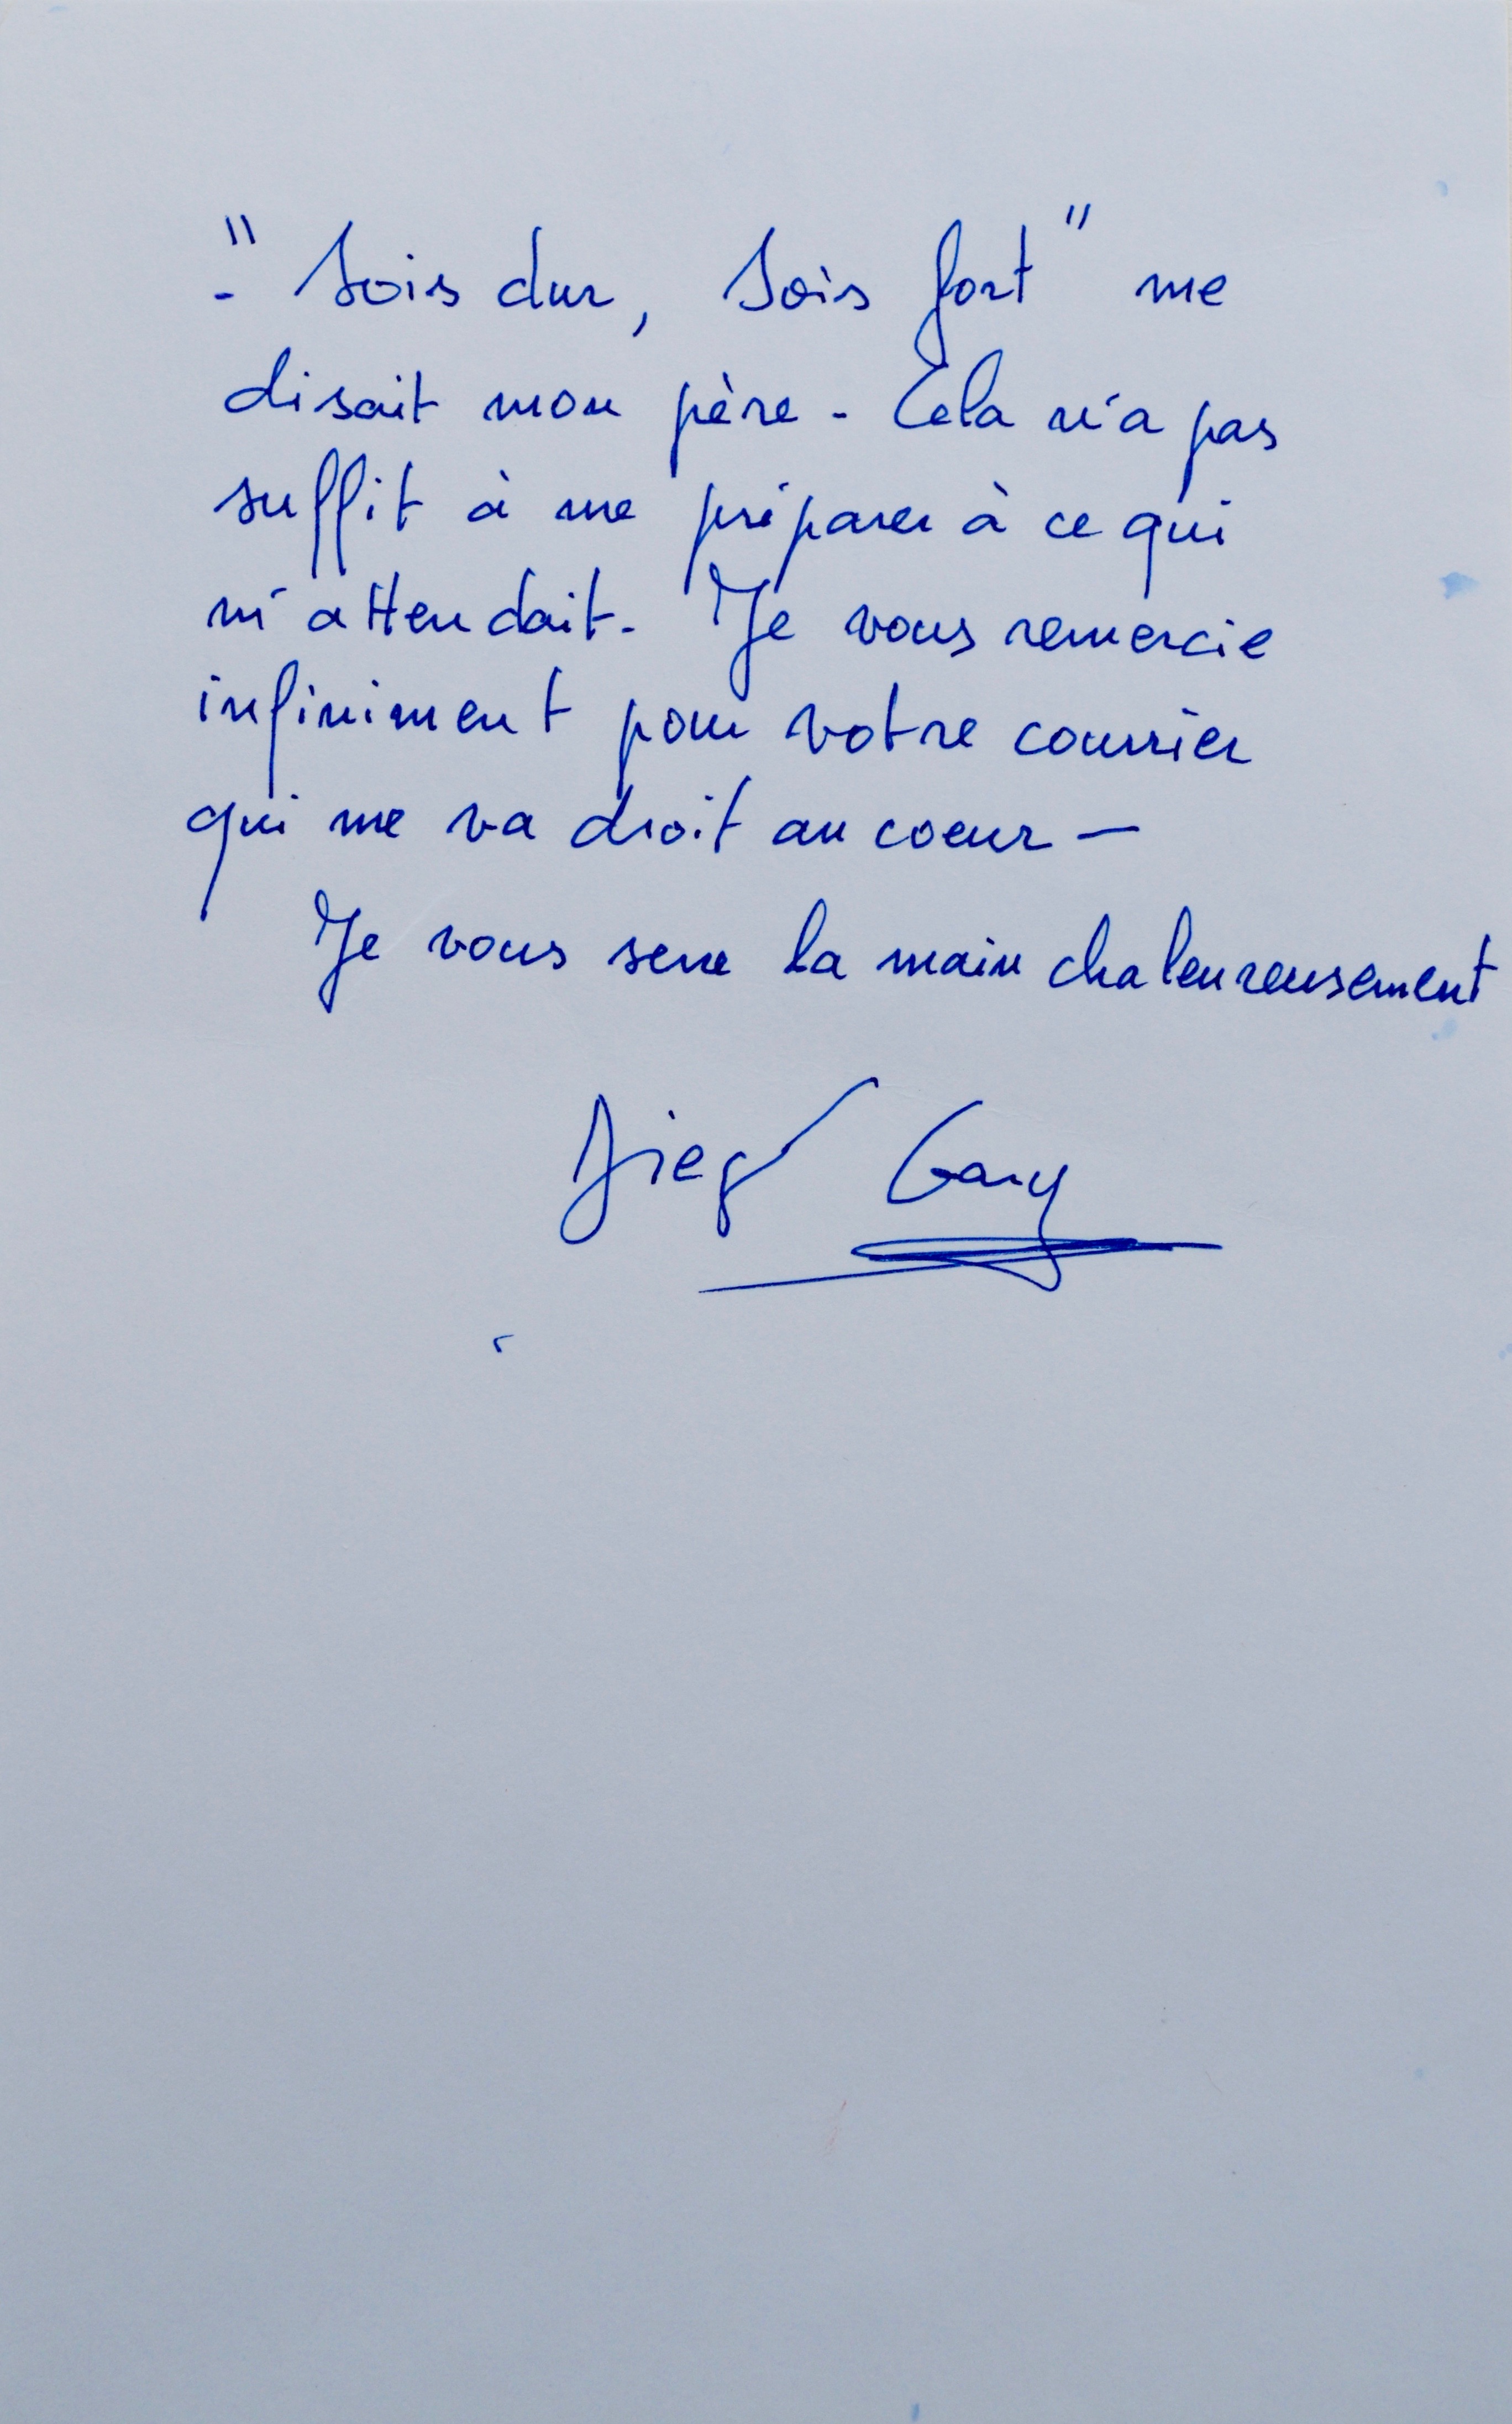 - "Sois dur, Sois fort" me
disait mon père - Cela n'a pas
suffit à me préparer à ce qui
m'attendait. Je vous remercie
infiniment pour votre courrier
qui me va droit au coeur —
Je vous serre la main chaleureusement
Diego Gary